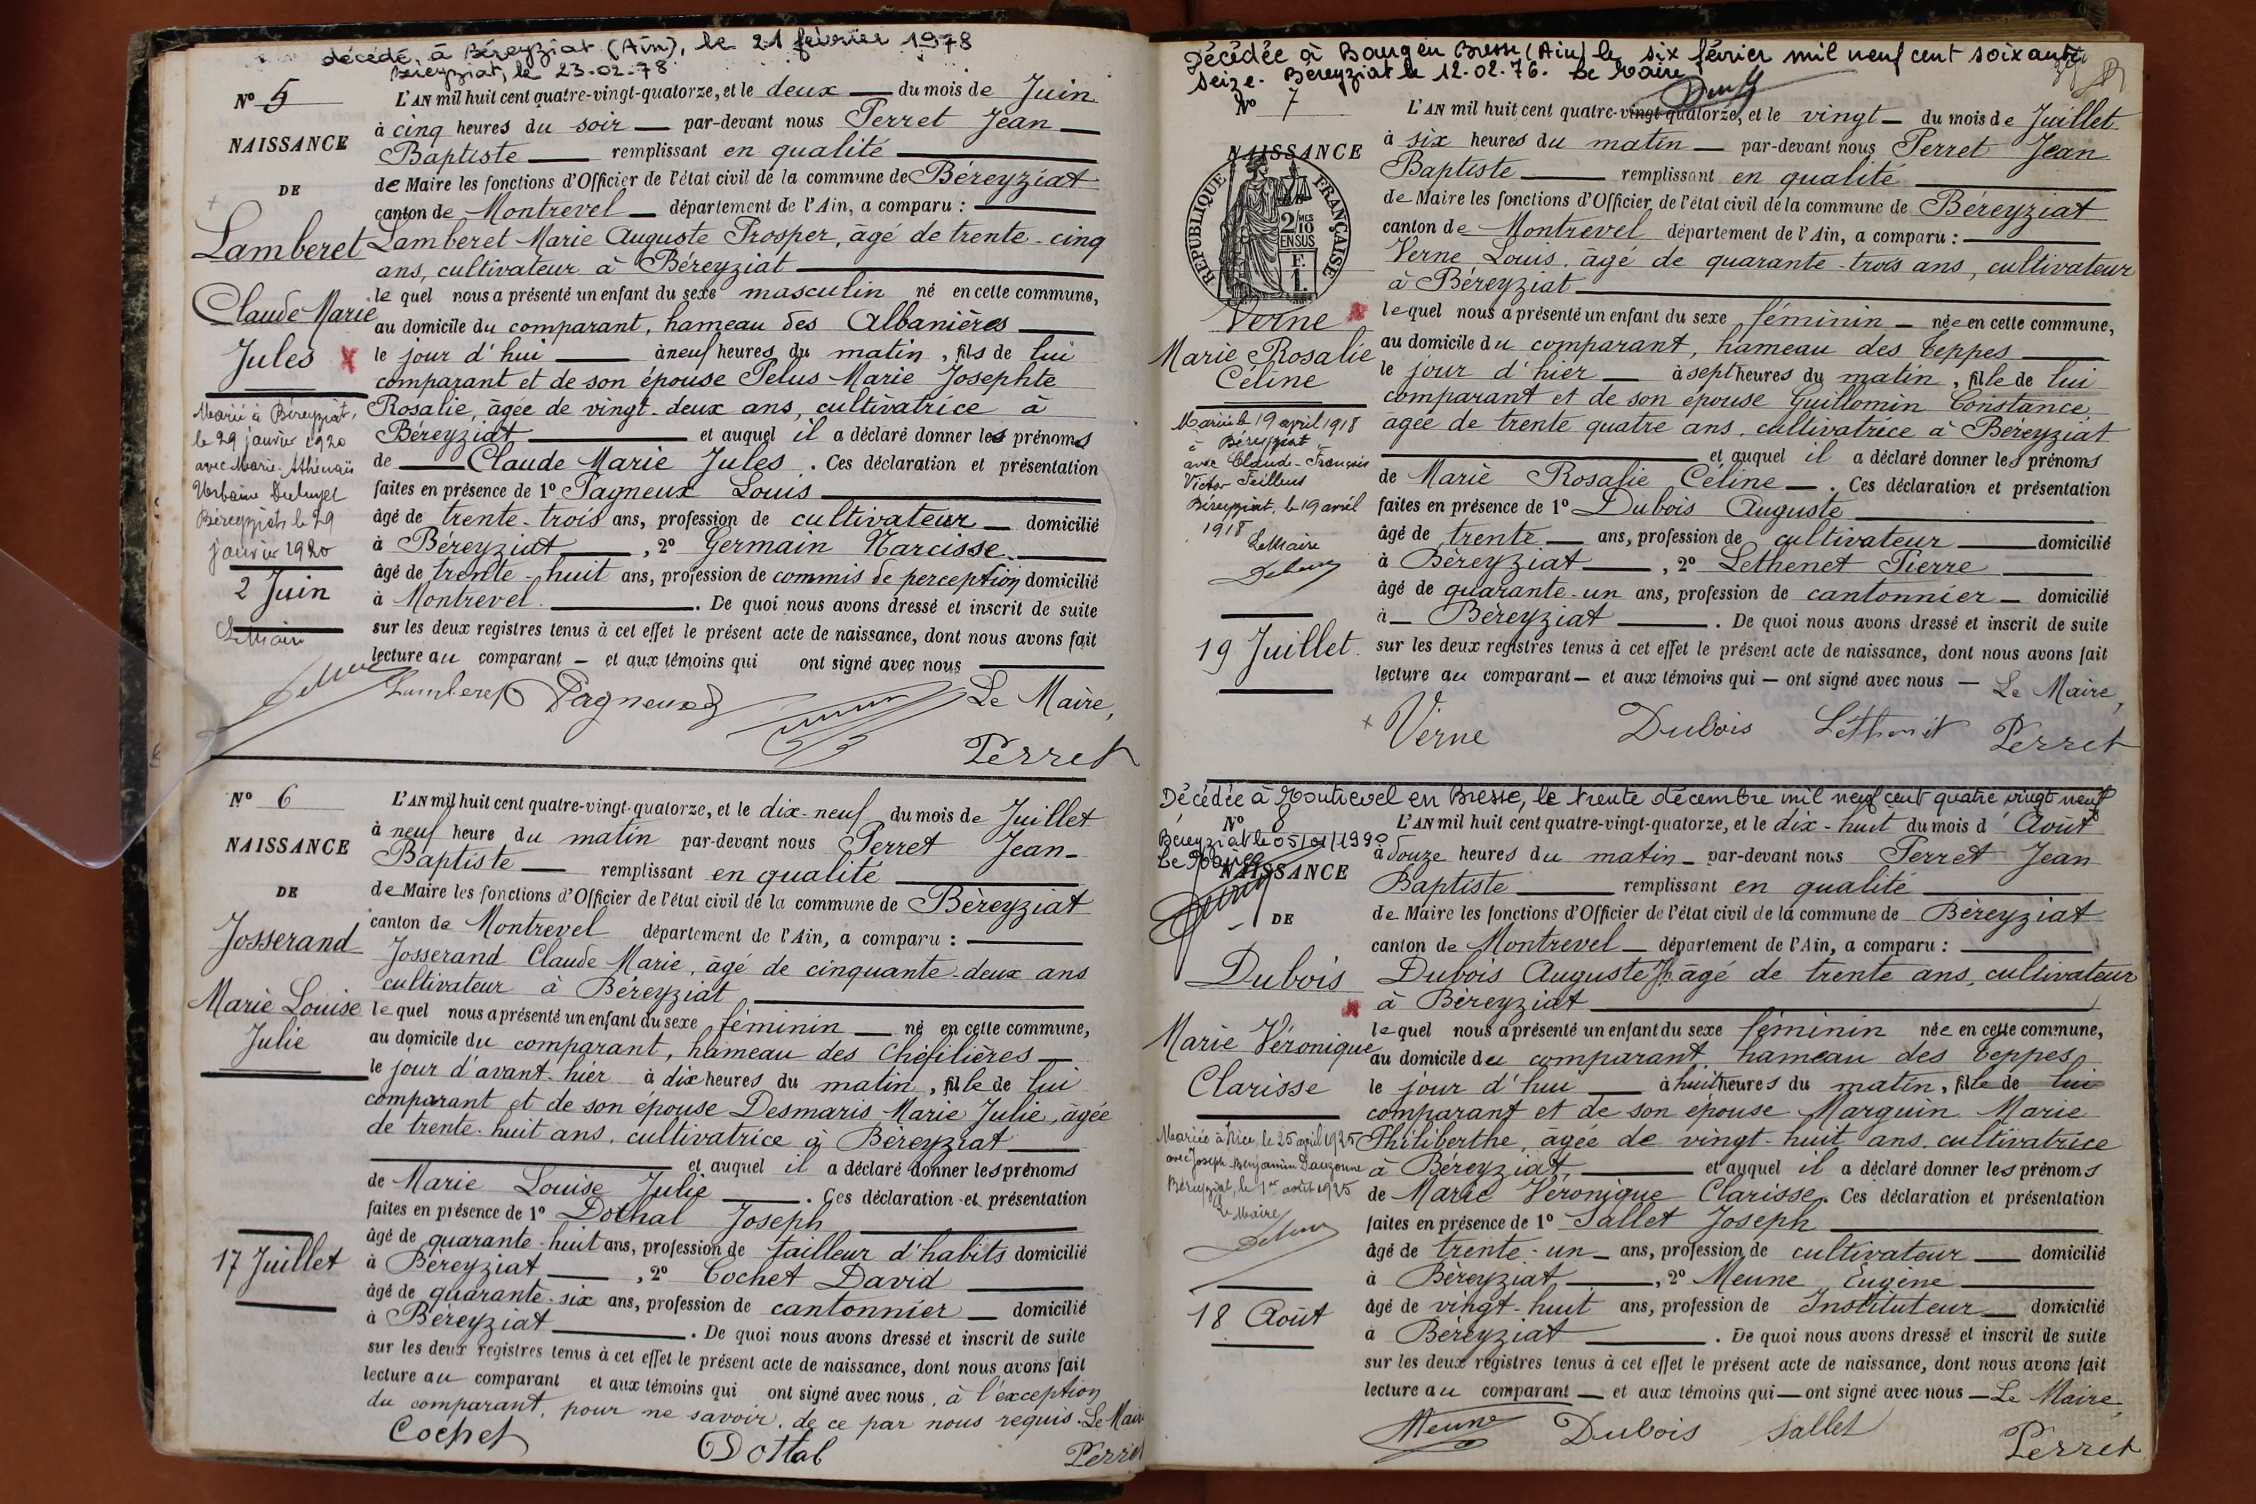 décédé à Béreyziat (Ain), le 21 février 1978
Béreyziat, le 23-02-78
N° 5
NAISSANCE
DE
Lamberet
Claude Marie
Jules
Marié à Béreyziat,
le 29 janvier 1920
avec Marie-Athénaïs
Béreyziat, le 29
janvier 1920
2 Juin
Le Maire
L'AN mil huit cent quatre-vingt-quatorze, et le deux du mois de Juin
à cinq heures du soir par-devant nous Perret Jean
Baptiste remplissant en qualité
de Maire les fonctions d'Officier de l'état civil de la commune de Béreyziat
canton de Montrevel département de l'Ain, a comparu :
Lamberet Marie Auguste Prosper, âgé de trente-cinq
ans, cultivateur à Béreyziat
le quel nous a présenté un enfant du sexe masculin né en cette commune,
au domicile du comparant, hameau des Albanières
le jour d'hui à neuf heures du matin, fils de lui
comparant et de son épouse Pelus Marie Josephte
Rosalie, âgée de vingt-deux ans, cultivatrice à
Béreyziat et auquel il a déclaré donner les prénoms
de Claude Marie Jules. Ces déclaration et présentation
faites en présence de 1° Pagneux Louis
âgé de trente-trois ans, profession de cultivateur domicilié
à Béreyziat, 2° Germain Narcisse
âgé de trente-huit ans, profession de commis de perception domicilié
à Montrevel. De quoi nous avons dressé et inscrit de suite
sur les deux registres tenus à cet effet le présent acte de naissance, dont nous avons fait
lecture au comparant et aux témoins qui ont signé avec nous
Lamberet Pagneux Le Maire,
Perret
N° 6
NAISSANCE
DE
Josserand
Marie Louise
Julie
17 Juillet
L'AN mil huit cent quatre-vingt-quatorze, et le dix-neuf du mois de Juillet
à neuf heure du matin par-devant nous Perret Jean-
Baptiste remplissant en qualité
de Maire les fonctions d'Officier de l'état civil de la commune de Béreyziat
canton de Montrevel département de l'Ain, a comparu :
Josserand Claude Marie, âgé de cinquante-deux ans
cultivateur à Béreyziat
le quel nous a présenté un enfant du sexe féminin né en cette commune,
au domicile du comparant, hameau des
le jour d'avant-hier à dix heures du matin, fille de lui
comparant et de son épouse Desmaris Marie Julie, âgée
de trente-huit ans, cultivatrice à Béreyziat
et auquel il a déclaré donner les prénoms
de Marie Louise Julie. Ces déclaration et présentation
faites en présence de 1° Dothal Joseph
âgé de quarante-huit ans, profession de tailleur d'habits domicilié
à Béreyziat, 2° Cochet David
âgé de quarante-six ans, profession de cantonnier domicilié
à Béreyziat. De quoi nous avons dressé et inscrit de suite
sur les deux registres tenus à cet effet le présent acte de naissance, dont nous avons fait
lecture au comparant et aux témoins qui ont signé avec nous, à l'exception
du comparant, pour ne savoir, de ce par nous requis. Le Maire
Cochet Dottal Perret
Décédée à Bourg en Bresse (Ain) le six février mil neuf cent soixante
seize. Béreyziat le 12.02.76. Le Maire
N° 7
NAISSANCE
RÉPUBLIQUE FRANÇAISE
2/10 MES
EN SUS
F.
1.
Verne
Marie Rosalie
Céline
Mariée le 19 april 1918
à Béreyziat
avec Claude-François
Victor Feillens
Béreyziat, le 19 avril
1918
Le Maire
19 Juillet
L'AN mil huit cent quatre-vingt-quatorze, et le vingt du mois de Juillet
à six heures du matin par-devant nous Perret Jean
Baptiste remplissant en qualité
de Maire les fonctions d'Officier de l'état civil de la commune de Béreyziat
canton de Montrevel département de l'Ain, a comparu :
Verne Louis, âgé de quarante-trois ans, cultivateur
à Béreyziat
le quel nous a présenté un enfant du sexe féminin née en cette commune,
au domicile du comparant, hameau des Teppes
le jour d'hier à sept heures du matin, fille de lui
comparant et de son épouse Guillomin Constance
âgée de trente quatre ans, cultivatrice à Béreyziat
et auquel il a déclaré donner les prénoms
de Marie Rosalie Céline. Ces déclaration et présentation
faites en présence de 1° Dubois Auguste
âgé de trente ans, profession de cultivateur domicilié
à Béreyziat, 2° Lethenet Pierre
âgé de quarante-un ans, profession de cantonnier domicilié
à Béreyziat. De quoi nous avons dressé et inscrit de suite
sur les deux registres tenus à cet effet le présent acte de naissance, dont nous avons fait
lecture au comparant et aux témoins qui ont signé avec nous Le Maire,
Verne Dubois Lethenet Perret
Décédée à Montrevel en Bresse, le trente décembre mil neuf cent quatre vingt neuf
Béreyziat le 05/01/1990
Le Maire
N° 8
NAISSANCE
DE
Dubois
Marie Véronique
Clarisse
Mariée à Nice, le 25 april 1925
avec Joseph Benjamin Dauzonne
Béreyziat, le 1er août 1925
Le Maire
18 Août
L'AN mil huit cent quatre-vingt-quatorze, et le dix-huit du mois d'Août
à douze heures du matin par-devant nous Perret Jean
Baptiste remplissant en qualité
de Maire les fonctions d'Officier de l'état civil de la commune de Béreyziat
canton de Montrevel département de l'Ain, a comparu :
Dubois Auguste Jh âgé de trente ans, cultivateur
à Béreyziat
le quel nous a présenté un enfant du sexe féminin née en cette commune,
au domicile du comparant hameau des Teppes
le jour d'hui à huit heures du matin, fille de lui
comparant et de son épouse Marguin Marie
Philiberthe, âgée de vingt-huit ans, cultivatrice
à Béreyziat et auquel il a déclaré donner les prénoms
de Marie Véronique Clarisse. Ces déclaration et présentation
faites en présence de 1° Sallet Joseph
âgé de trente-un ans, profession de cultivateur domicilié
à Béreyziat, 2° Meune Eugène
âgé de vingt-huit ans, profession de Instituteur domicilié
à Béreyziat. De quoi nous avons dressé et inscrit de suite
sur les deux registres tenus à cet effet le présent acte de naissance, dont nous avons fait
lecture au comparant et aux témoins qui ont signé avec nous Le Maire,
Meune Dubois Sallet Perret